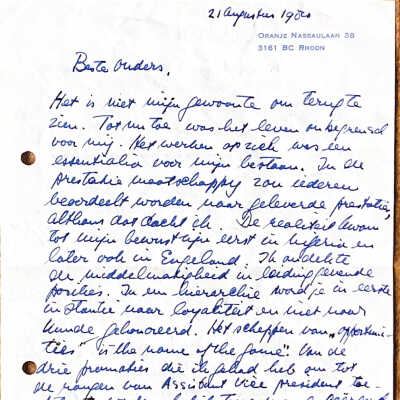 21 Augustus 1980
ORANJE NASSAULAAN 38
3161 BC RHOON
Beste Ouders,
Het is niet mijn gewoonte om terug te
zien. Tot nu toe was het leven onbegrensd
voor mij. Het werken op zich was een
essentialia voor mijn bestaan. In de
prestatie maatschappij zou iedereen
beoordeelt worden naar geleverde prestaties,
althans dat dacht ik. De realiteit kwam
tot mijn bewustzijn eerst in Nigeria en
later ook in Engeland. Ik ontdekte
de middelmatigheid in leidinggevende
posities. In een hierarchie word je in eerste
instantie naar loyaliteit en niet naar
kunde gehonoreerd. Het scheppen van "opportuni-
ties" is "the name of the game". Van de
drie promoties die ik gehad heb om tot
de rangen van Assistant Vice president toe-